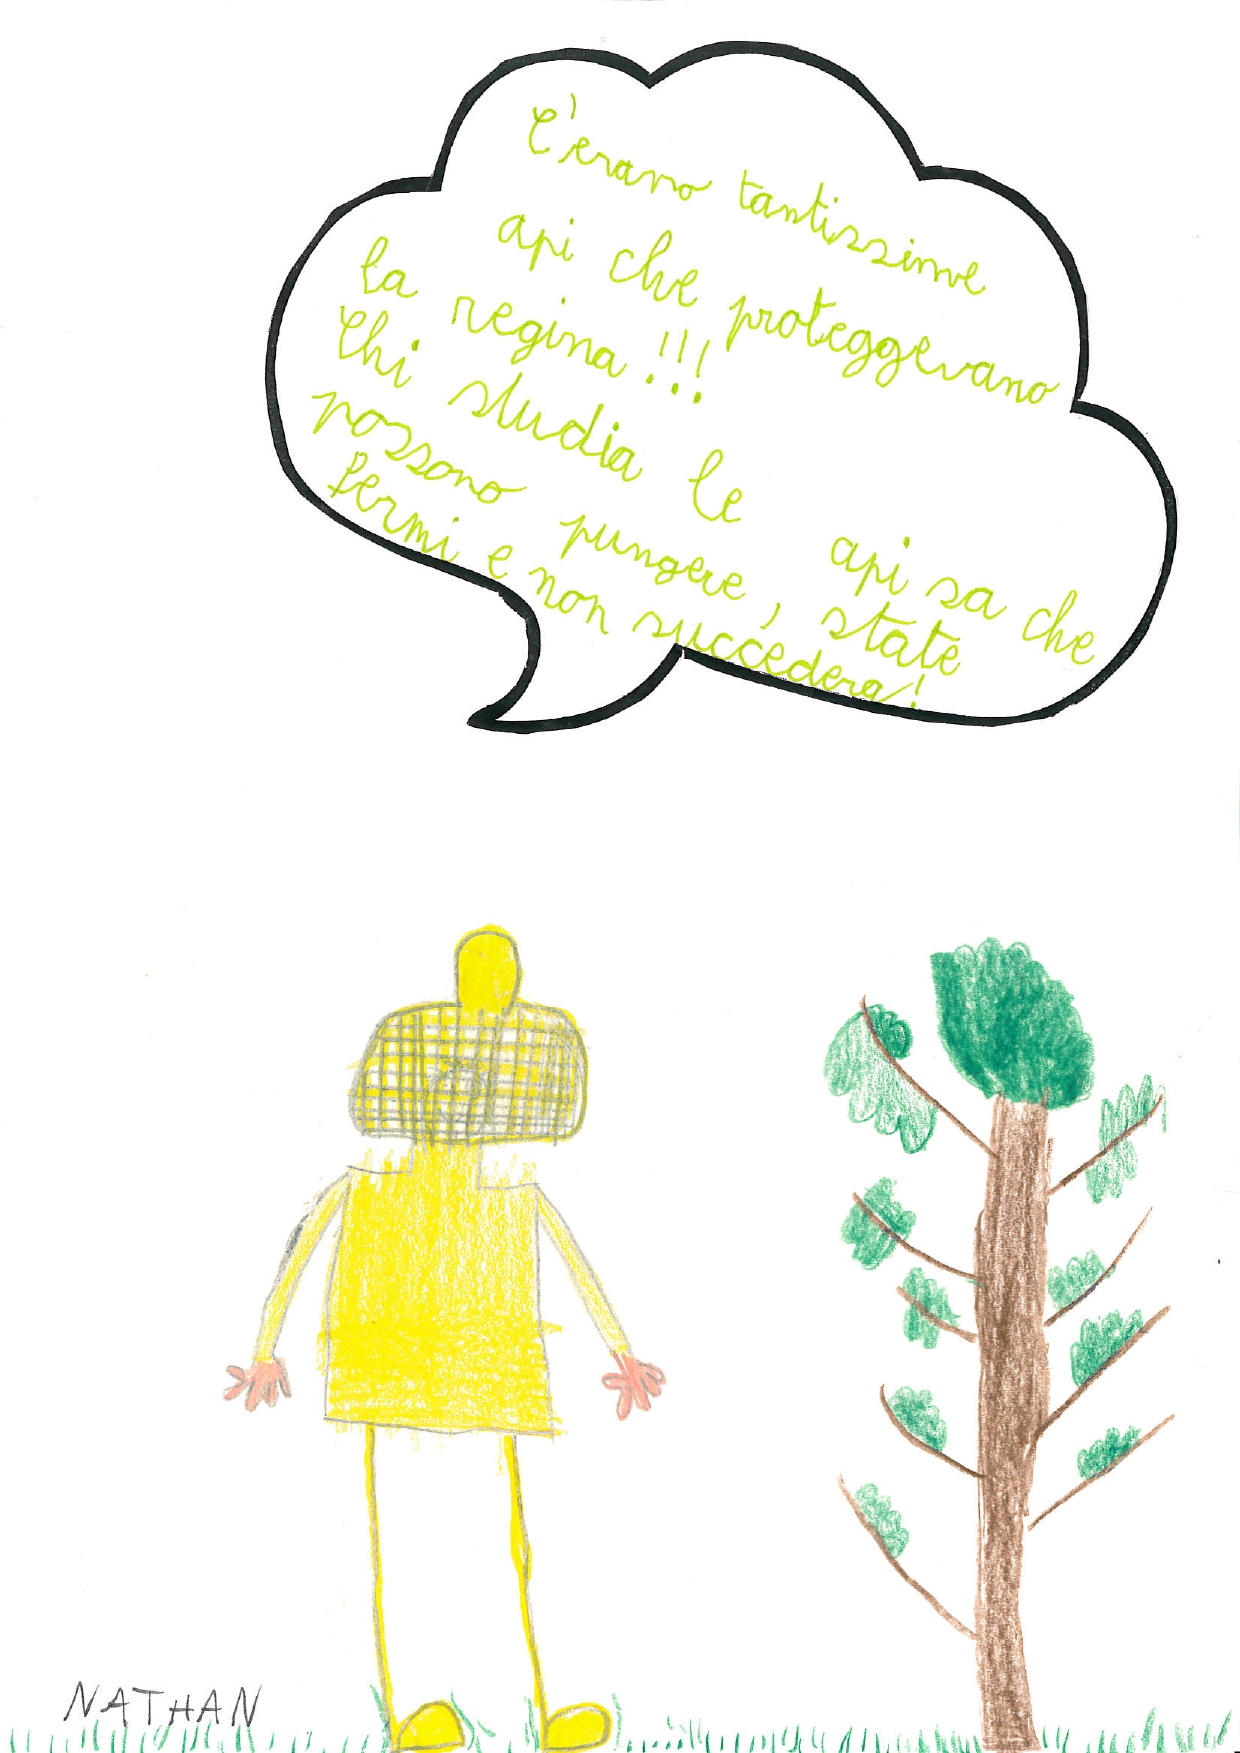 C'erano tantissime
api che proteggevano
la regina!!!
Chi studia le api sa che
possono pungere, state
fermi e non succederà!
NATHAN